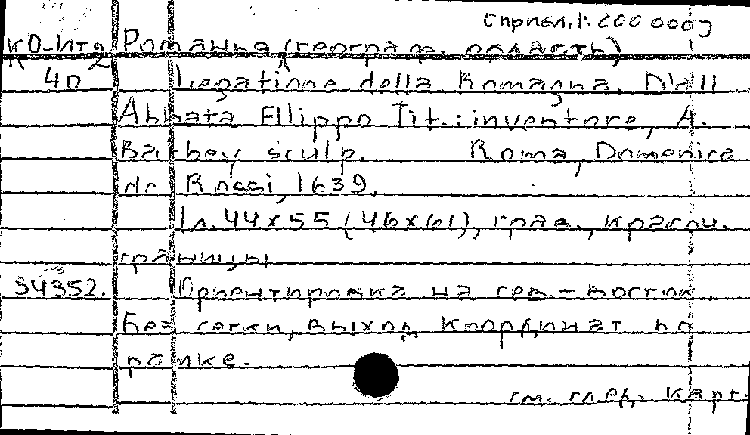 [прибл. 1: 200 000]
КО-Ит2 Романья (географ. область)
4п Legatione della Romagna. D'all
Abbata Filippo Tit.: inventore, A.
Barbey sculp. Roma, Domenico
de Rossi, 1639.
1 л. 44x55 (46x61), грав., красоч.
границы
34352. Ориентировка на сев.-восток.
Без сетки, выход координат по
рамке.
см. след. карт.